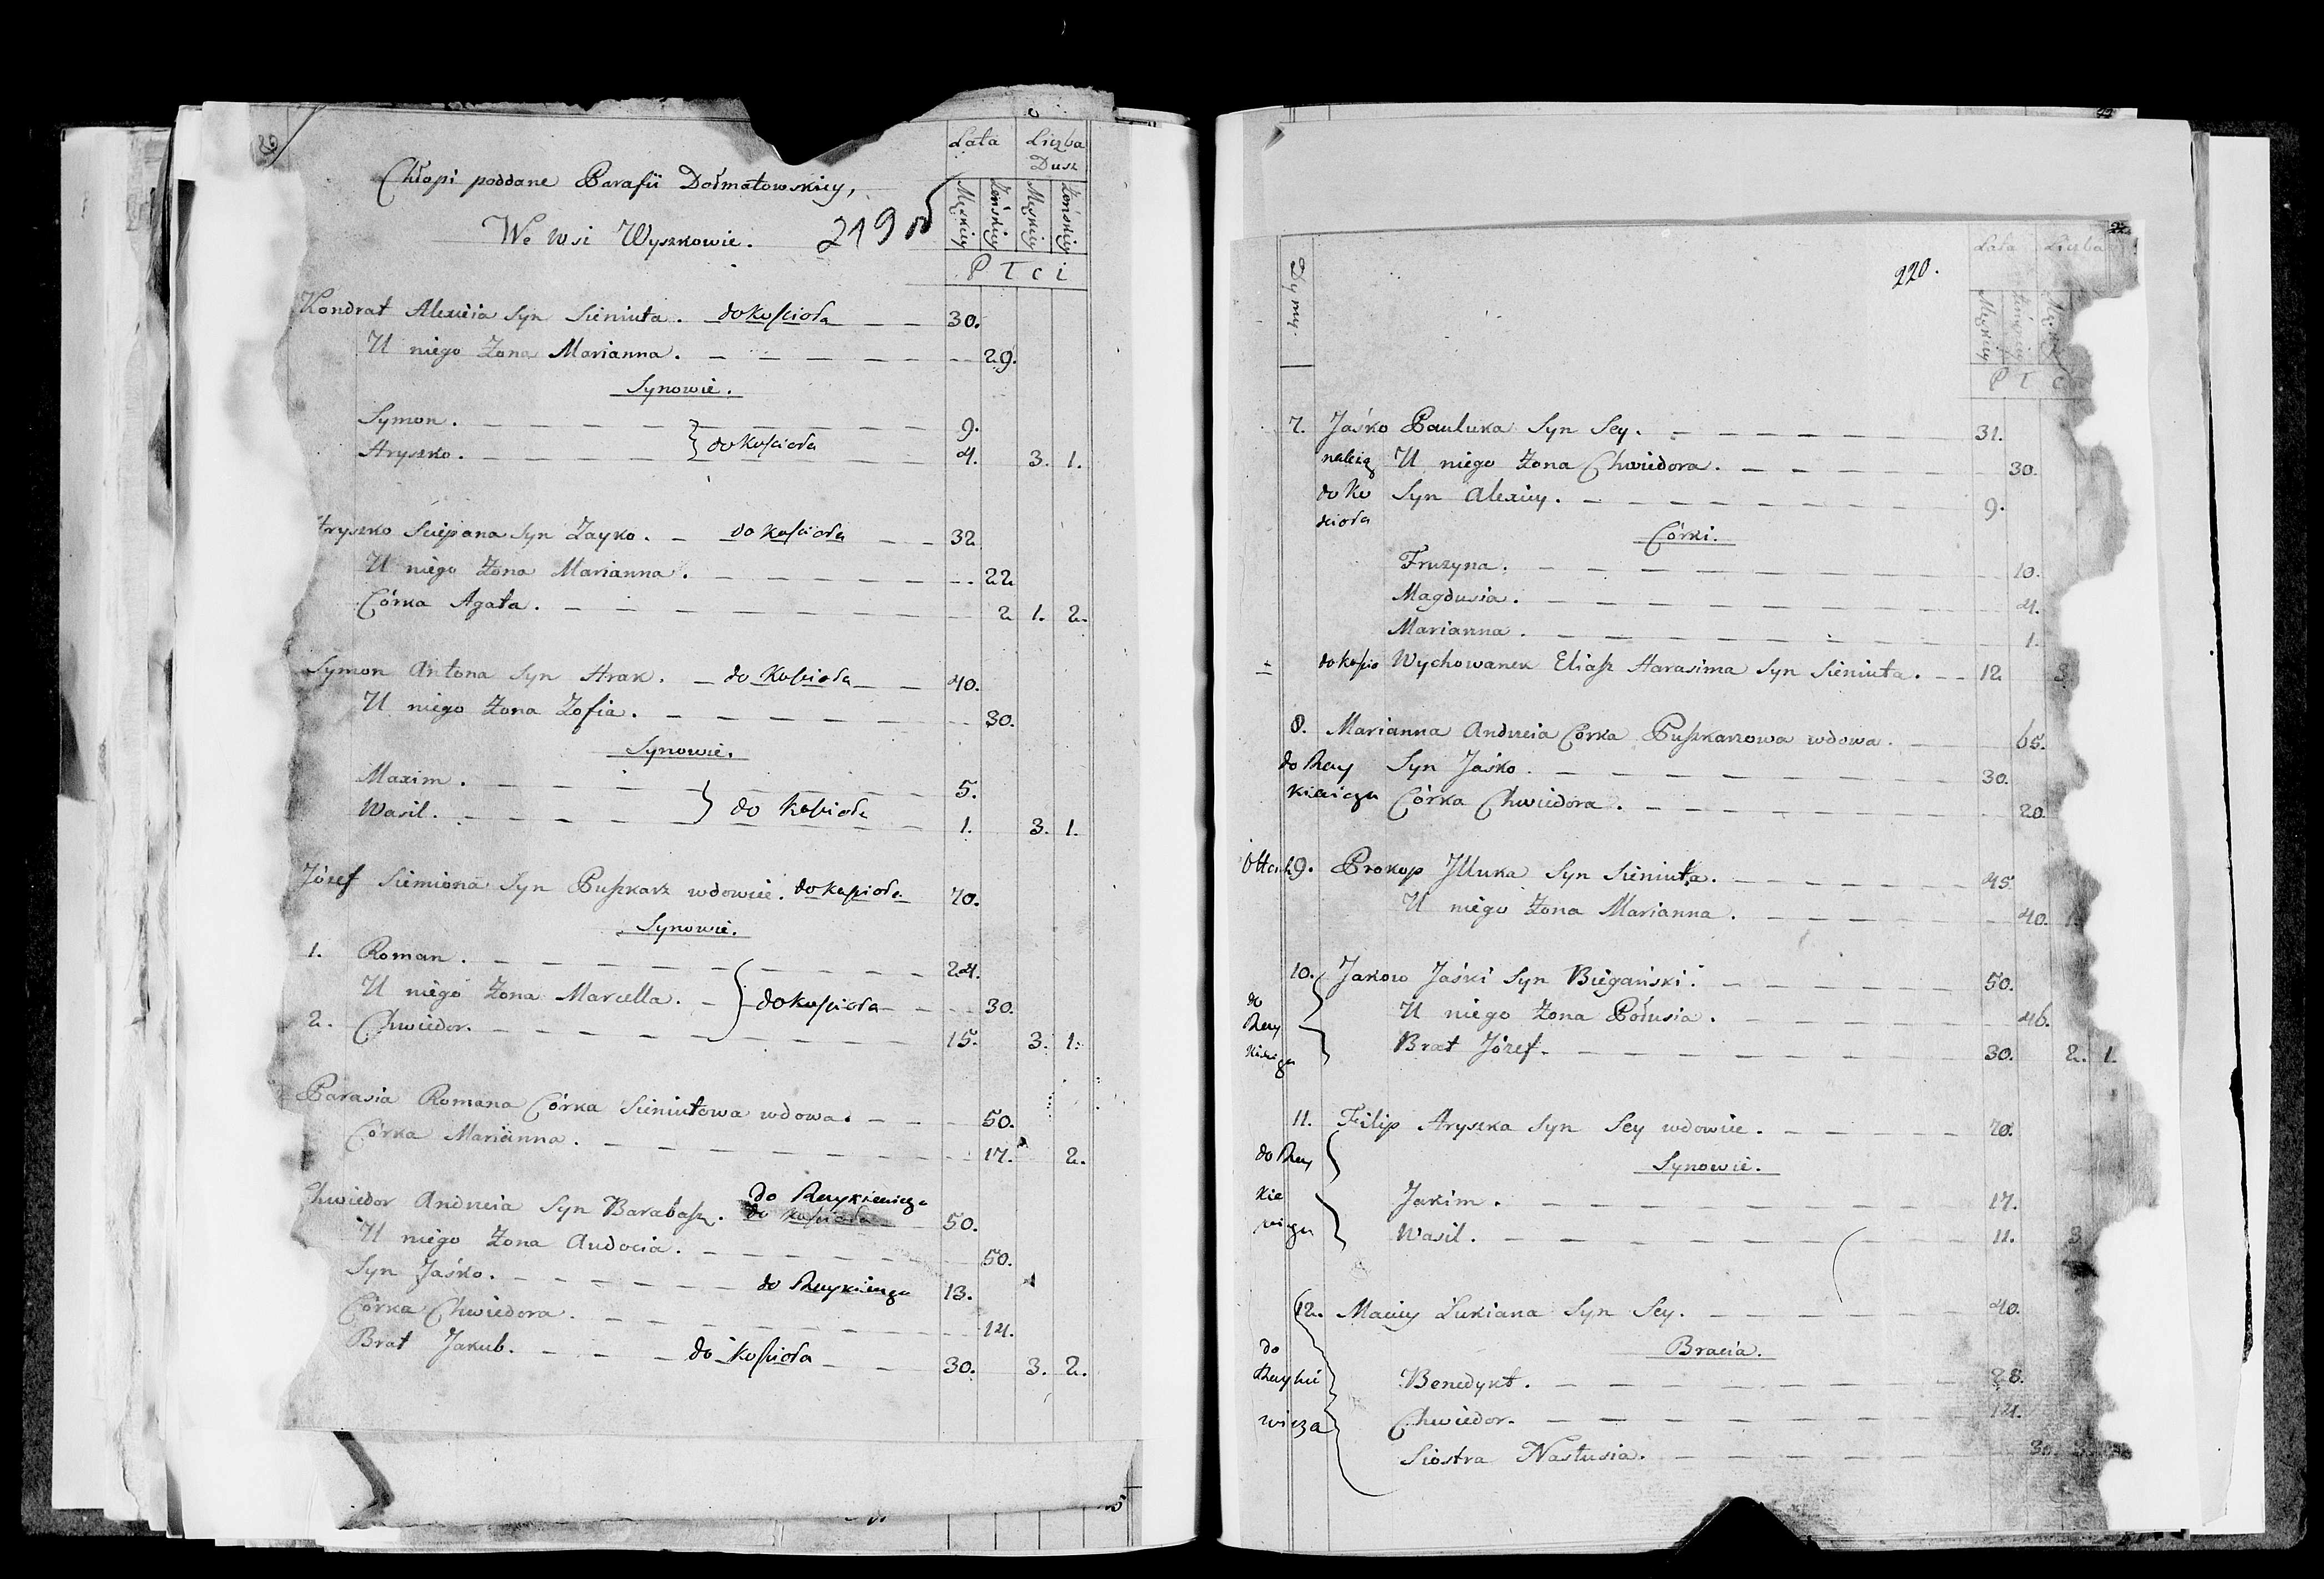 Lata Liczba Dusz
Męskiey Żeńskiey Męskiey Żeńskiey
Płci
Chłopi poddane Parafii Dołmatowskiey,
We wsi Wyszkowie. 219
Kondrat Alexieia Syn Sieniuta. do kościoła 30.
U niego Żona Marianna. 29.
Synowie.
Symon. 9.
Hryszko. } do kościoła 4. 3. 1.
Hryszko Sciepana Syn Zayko. do kościoła 32
U niego Żona Marianna. 22
Córka Agata. 2 1. 2.
Symon Antona Syn Hrak. do kościoła 40.
U niego Żona Zofia. 30.
Synowie.
Maxim. 5.
Wasil. } do kościoła 1. 3. 1.
Józef Siemiona Syn Puszkarz wdowiec. do kościoła 70.
Synowie.
1. Roman. 24.
U niego Żona Marcella. } do kościoła 30.
2. Chwiedor. 15. 3. 1.
Parasia Romana Córka Sieniutowa wdowa. 50.
Córka Marianna. 17. 2.
do Reykiewicza
Chwiedor Andrzeia Syn Barabasz. do kościoła 50.
U niego Żona Audocia. 50.
Syn Jaśko. do Reykiewicza 13.
Córka Chwiedora. 14.
Brat Jakub. do kościoła 30. 3. 2.
Dymy. 220. Lata Liczba
Męskiey Żeńskiey Męskiey
Płc
7. Jaśko Pauluka Syn Sey. 31.
należą U niego Żona Chwiedora. 30.
do ko Syn Alexiey. 9.
ścioła
Córki.
Fruzyna. 10.
Magdusia. 4.
Marianna. 1.
do kościo Wychowanek Eliasz Harasima Syn Sieniuta. 12 3
8. Marianna Andrzeia Córka Puszkarzowa wdowa. 65.
do Rey Syn Jaśko. 30.
kiewicza Córka Chwiedora. 20.
9. Prokop Illuka Syn Sieniuta. 45
U niego Żona Marianna. 40. 1.
10. Jakow Jaśki Syn Biegański. 50.
do U niego Żona Połusia. 46.
Rey
kiewicza Brat Józef. 30. 2. 1.
11. Filip Hryszka Syn Sey wdowiec. 70.
do Rey Synowie.
kie Jakim. 17.
wicza Wasil. 11. 3
12. Maciey Łukiana Syn Sey. 40.
do Bracia.
Reykie Benedykt. 28.
wicza Chwiedor. 14.
Siostra Nastusia. 30.